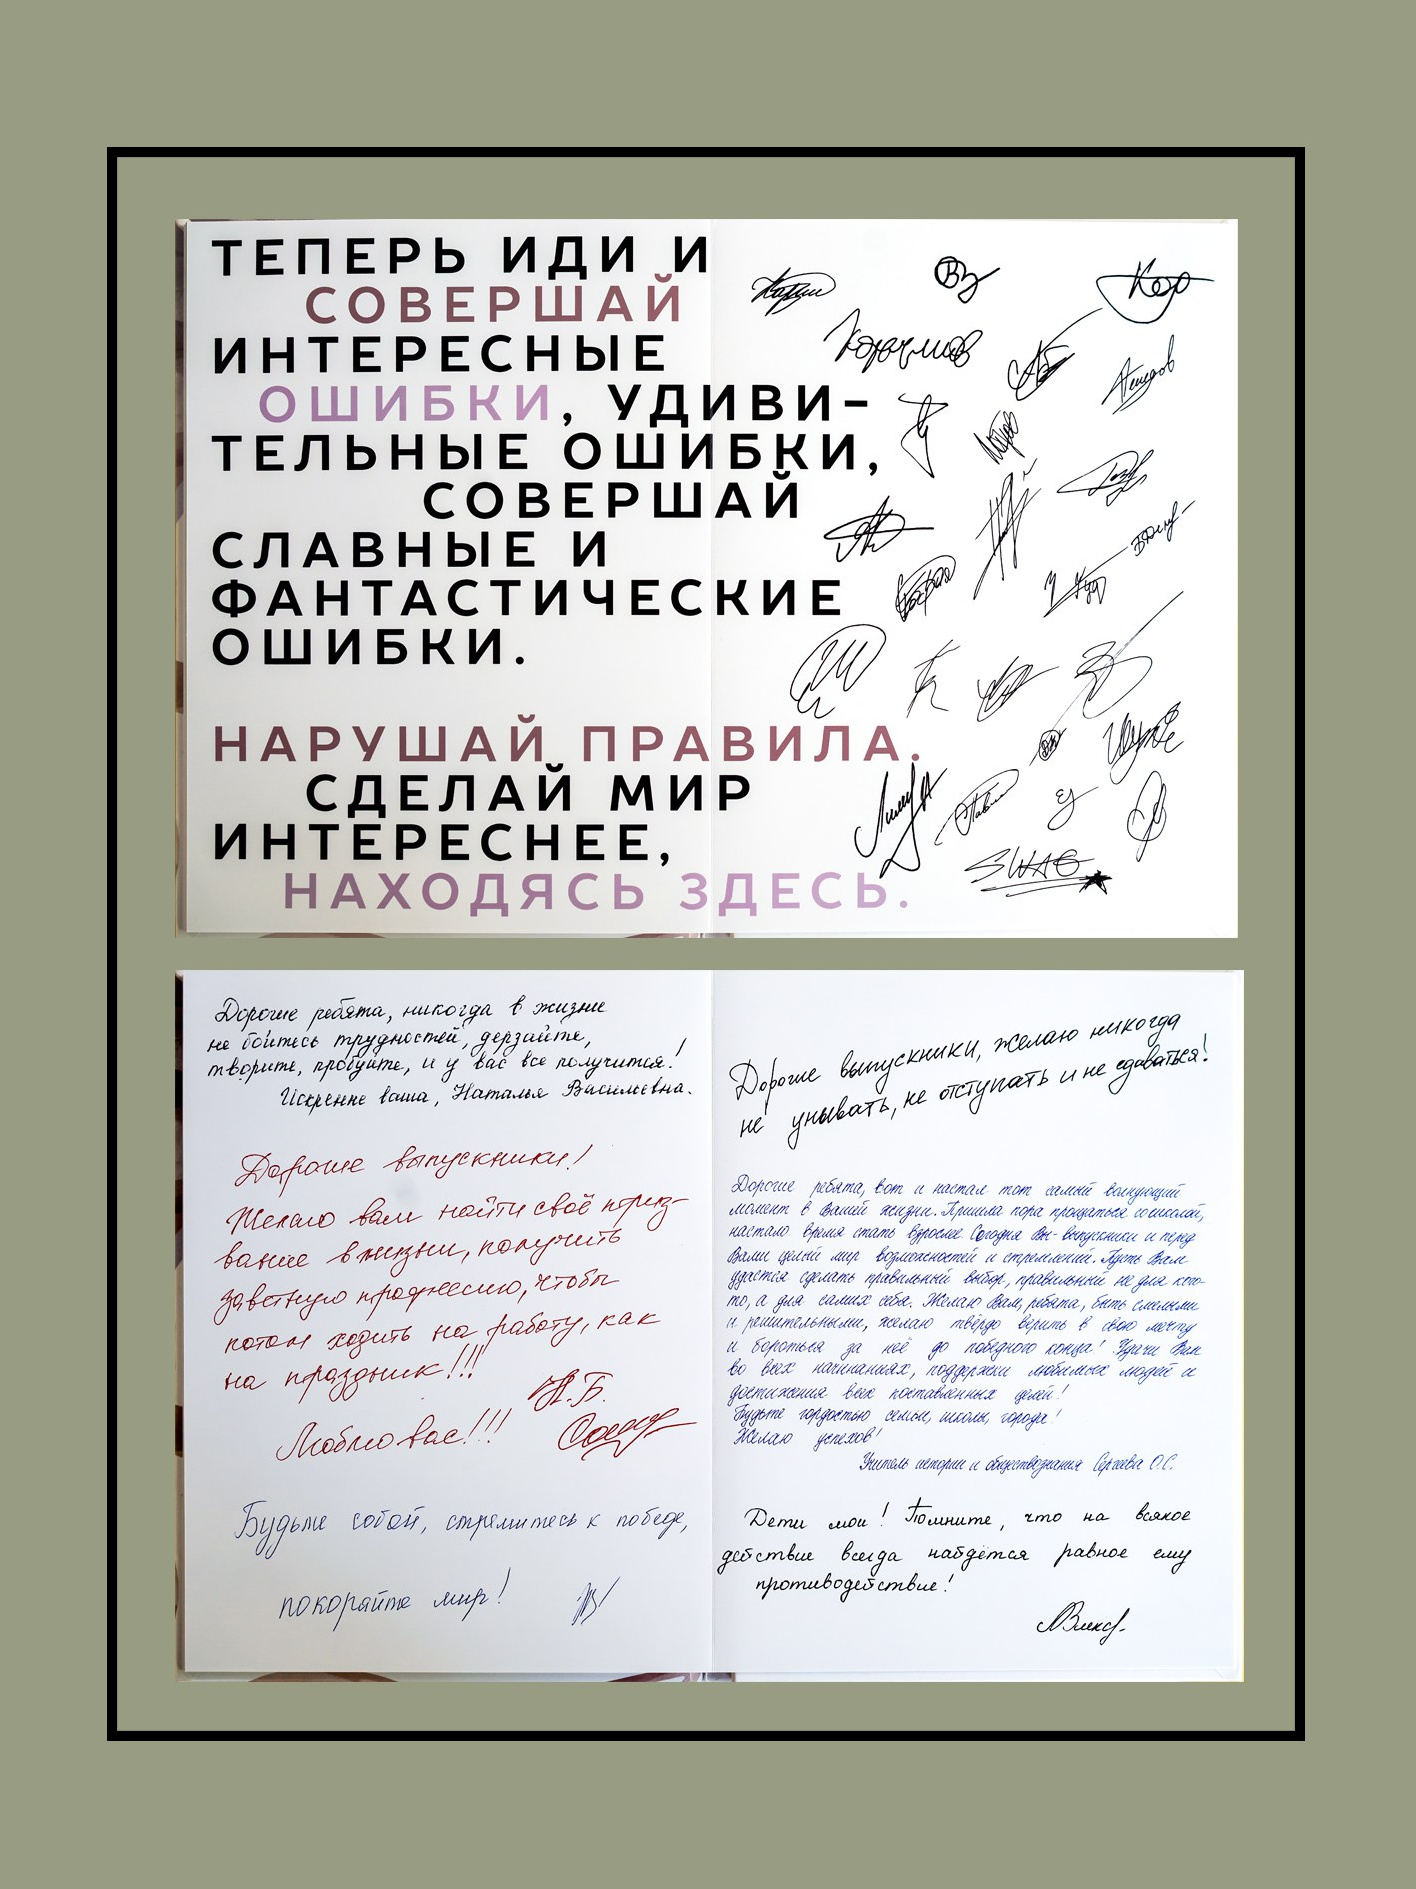 ТЕПЕРЬ ИДИ И
СОВЕРШАЙ
ИНТЕРЕСНЫЕ
ОШИБКИ, УДИВИ-
ТЕЛЬНЫЕ ОШИБКИ,
СОВЕРШАЙ
СЛАВНЫЕ И
ФАНТАСТИЧЕСКИЕ
ОШИБКИ.
НАРУШАЙ ПРАВИЛА.
СДЕЛАЙ МИР
ИНТЕРЕСНЕЕ,
НАХОДЯСЬ ЗДЕСЬ.
SWAG
Дорогие ребята, никогда в жизни
не бойтесь трудностей, дерзайте,
творите, пробуйте, и у вас все получится!
Искренне ваша, Наталья Васильевна.
Дорогие выпускники!
Желаю вам найти своё приз-
вание в жизни, получить
заветную профессию, чтобы
потом ходить на работу, как
на праздник!!!
Н.Б.
Люблю вас!!!
Будьте собой, стремитесь к победе,
покоряйте мир!
Дорогие выпускники, желаю никогда
не унывать, не отступать и не сдаваться!
Дорогие ребята, вот и настал тот самый волнующий
момент в Вашей жизни. Пришла пора прощаться со школой,
настало время стать взрослее. Сегодня Вы - выпускники и перед
Вами целый мир возможностей и стремлений. Пусть Вам
удастся сделать правильный выбор, правильный не для кого-
то, а для самих себя. Желаю Вам, ребята, быть смелыми
и решительными, желаю твёрдо верить в свою мечту
и бороться за неё до победного конца! Удачи Вам
во всех начинаниях, поддержки любимых людей и
достижения всех поставленных целей!
Будьте гордостью семьи, школы, города!
Желаю успехов!
Учитель истории и обществознания Сергеева О.С.
Дети мои! Помните, что на всякое
действие всегда найдётся равное ему
противодействие!